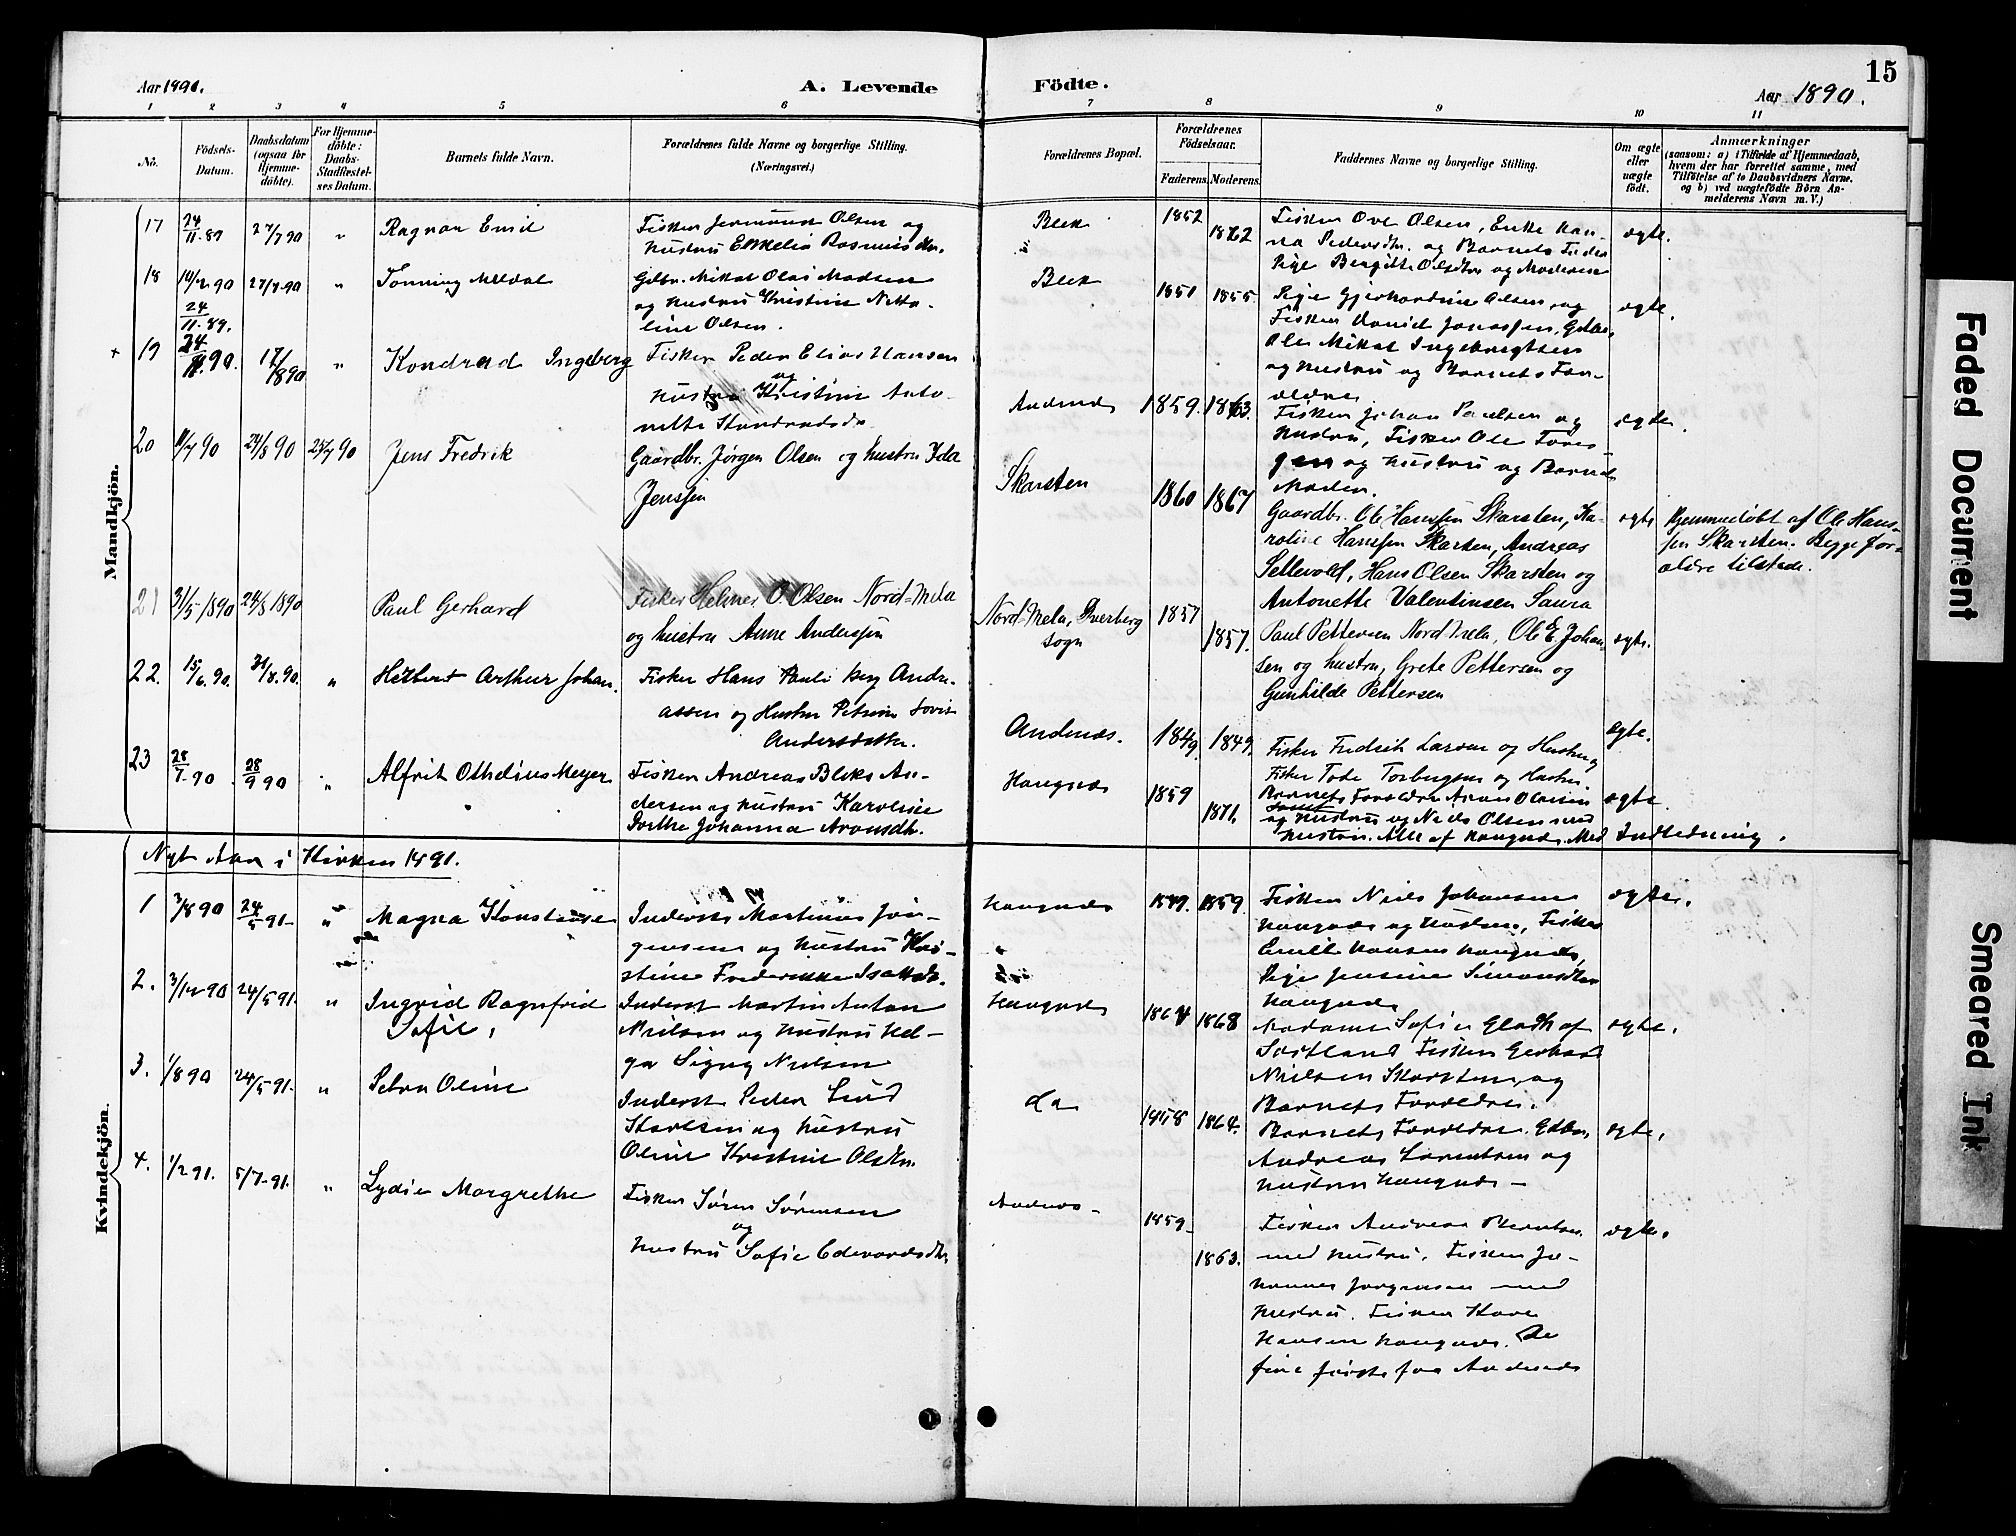 15
Aar 1890.
A. Levende
Födte.
Aar 1890.
1 2 3 4 5 6 7 8 9 10 11
No.
Födsels-
Datum.
Daabsdatum
(ogsaa for
Hjemme-
döbte).
For Hjemme-
döbte:
Daabs-
Stadfæstel-
ses Datum.
Barnets fulde Navn.
Forældrenes fulde Navne og borgerlige Stilling.
(Næringsvei.)
Forældrenes Bopæl.
Forældrenes
Födselsaar.
Faderens. Moderens.
Faddernes Navne og borgerlige Stilling.
Om ægte
eller
uægte
födt.
Anmærkninger
(saasom: a) i Tilfælde af Hjemmedaab,
hvem der har forrettet samme, med
Tilföielse af to Daabsvidners Navne.
og b) ved uægtefödte Börn An-
melderens Navn m. V.)
Mandkjön.
17 24/11.89 27/7 90 " Ragnar Emil
Blek 1852 1862
Fisker Ove Olsen, Enke Han-
na Pedersdtr. og Barnets Fader
Pige Bergitte Olsdtr og Moderen
ægte.
18 27/7.90 "
Gdbr. Mikal Olai Madsen
og Hustru Kristine Netta-
line Olsen.
Blek 1851 1855.
Pige Gjerhardine Olsen, og
Fisker Daniel Jonassen, Gdbr.
Ole Mikal Ingebrigtsen
og Hustru og Barnets For-
ældre.
ægte.
24/11.89.
+ 19 17/8 90 " Kondrad Ingeberg
Fisker Peder Elias Hansen
og
Hustru Kristine Anto-
nette
Andenes 1859. 1863.
Fisker Johan Paulsen og
Hustru, Fisker Ole
og Hustru og Barnets
Moder.
ægte.
20 11/4 90 24/8 90 25/4 90 Jens Fredrik
Gaardbr. Jørgen Olsen og hustru Ida
Jenssen
Skarsten 1860 1867
Gaardbr. Ole Hanssen Skarsten, Ka-
roline Hanssen Skarsten, Andreas
Sellevold, Hans Olsen Skarsten og
Antonette Valentinsen Saura
ægte
Hjemmedøbt af Ole Hans-
sen Skarsten. Begge for-
ældre tilstede.
21 31/5 1890 24/8 1890 Paul Gerhard
Fisker Helmer O. Olsen Nord-Mela
og hustru Anne Anderssen
Nord-Mela, Dverberg
sogn
1857 1857.
Paul Pettersen Nord Mela, Ole E. Johan
sen og hustru, Grete Pettersen og
Gunhilde Pettersen
ægte.
22. 15/6.90. 31/8.90. " Herbert Arthur Johan.
Fisker Hans Pauli Berg Andre-
assen og Hustru Petrine Lovise
Andersdatter.
Andenæs. 1849. 1849.
Fisker Fredrik Larsen og Hustru
Fisker Tode Torbergsen og Hustru
ægte.
23 28/7.90 28/9 90 " Alfrit Othelius Meyer
Fisker Andreas Bliks An-
dersen og Hustru Karoline
Dorthe Johanna Aronsdtr.
Haugnæs 1859 1871.
Barnets Forældre Aron Olaisen
og Hustru og Niels Olsen med
Hustru. Alle af Haugnæs. Med
ægte.
Indledning.
Nyt Aar i Kirken 1891.
Kvindekjön.
1 3/8 90 24/5 91 " Magna Konstanse
Inderst Martinus Jør-
gensen og Hustru Kri-
stine Frederikke
Haugnæs 1849. 1859.
Fisker Niels Johansen
Haugnæs og Hustru, Fisker
Emil Hansen Haugnæs,
Pige Jensine Simonsdtr
Haugnæs
ægte.
2. 3/12 90 24/5 91. " Ingrid Ragnfrid
Sofie,
Inderst Martin Anton
Nielsen og Hustru Hel-
ga Signy Nielsen
Haugnæs 1864 1868
Madame Sofie Gladh af
Sortland Fisker Gerhard
Nielsen Skarsten, og
Barnets Forældre.
ægte.
3. 1/8 90 24/5 91. " Petra Oline
Inderst Peder Lind
Karlsen og Hustru
Oline Kristine Olsdtr.
do 1858 1864.
Barnets Forældre. Gdbr.
Andreas Lorentsen og
Hustru Haugnæs –
ægte.
4. 1/2 91. 5/7-91. " Lydie Margrethe
Fisker Søren Sørensen
og
Hustru Sofie Edevardsdtr.
Andenæs – 1859- 1863.
Fisker Andreas Berntsen
med Hustru. Fisker Jo-
hannes Jørgensen med
Hustru. Fisker Kore
Hansen Haugnæs. De
fire første fra Andenæs
ægte.
Faded Document
Smeared Ink